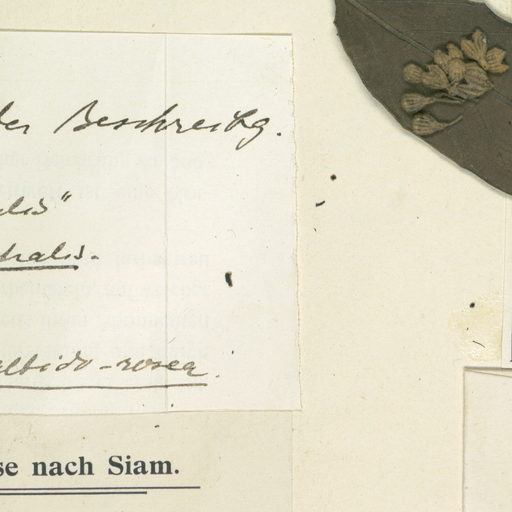 der Beschreibg.
alis"
tralis.
albido-rosea.
se nach Siam.